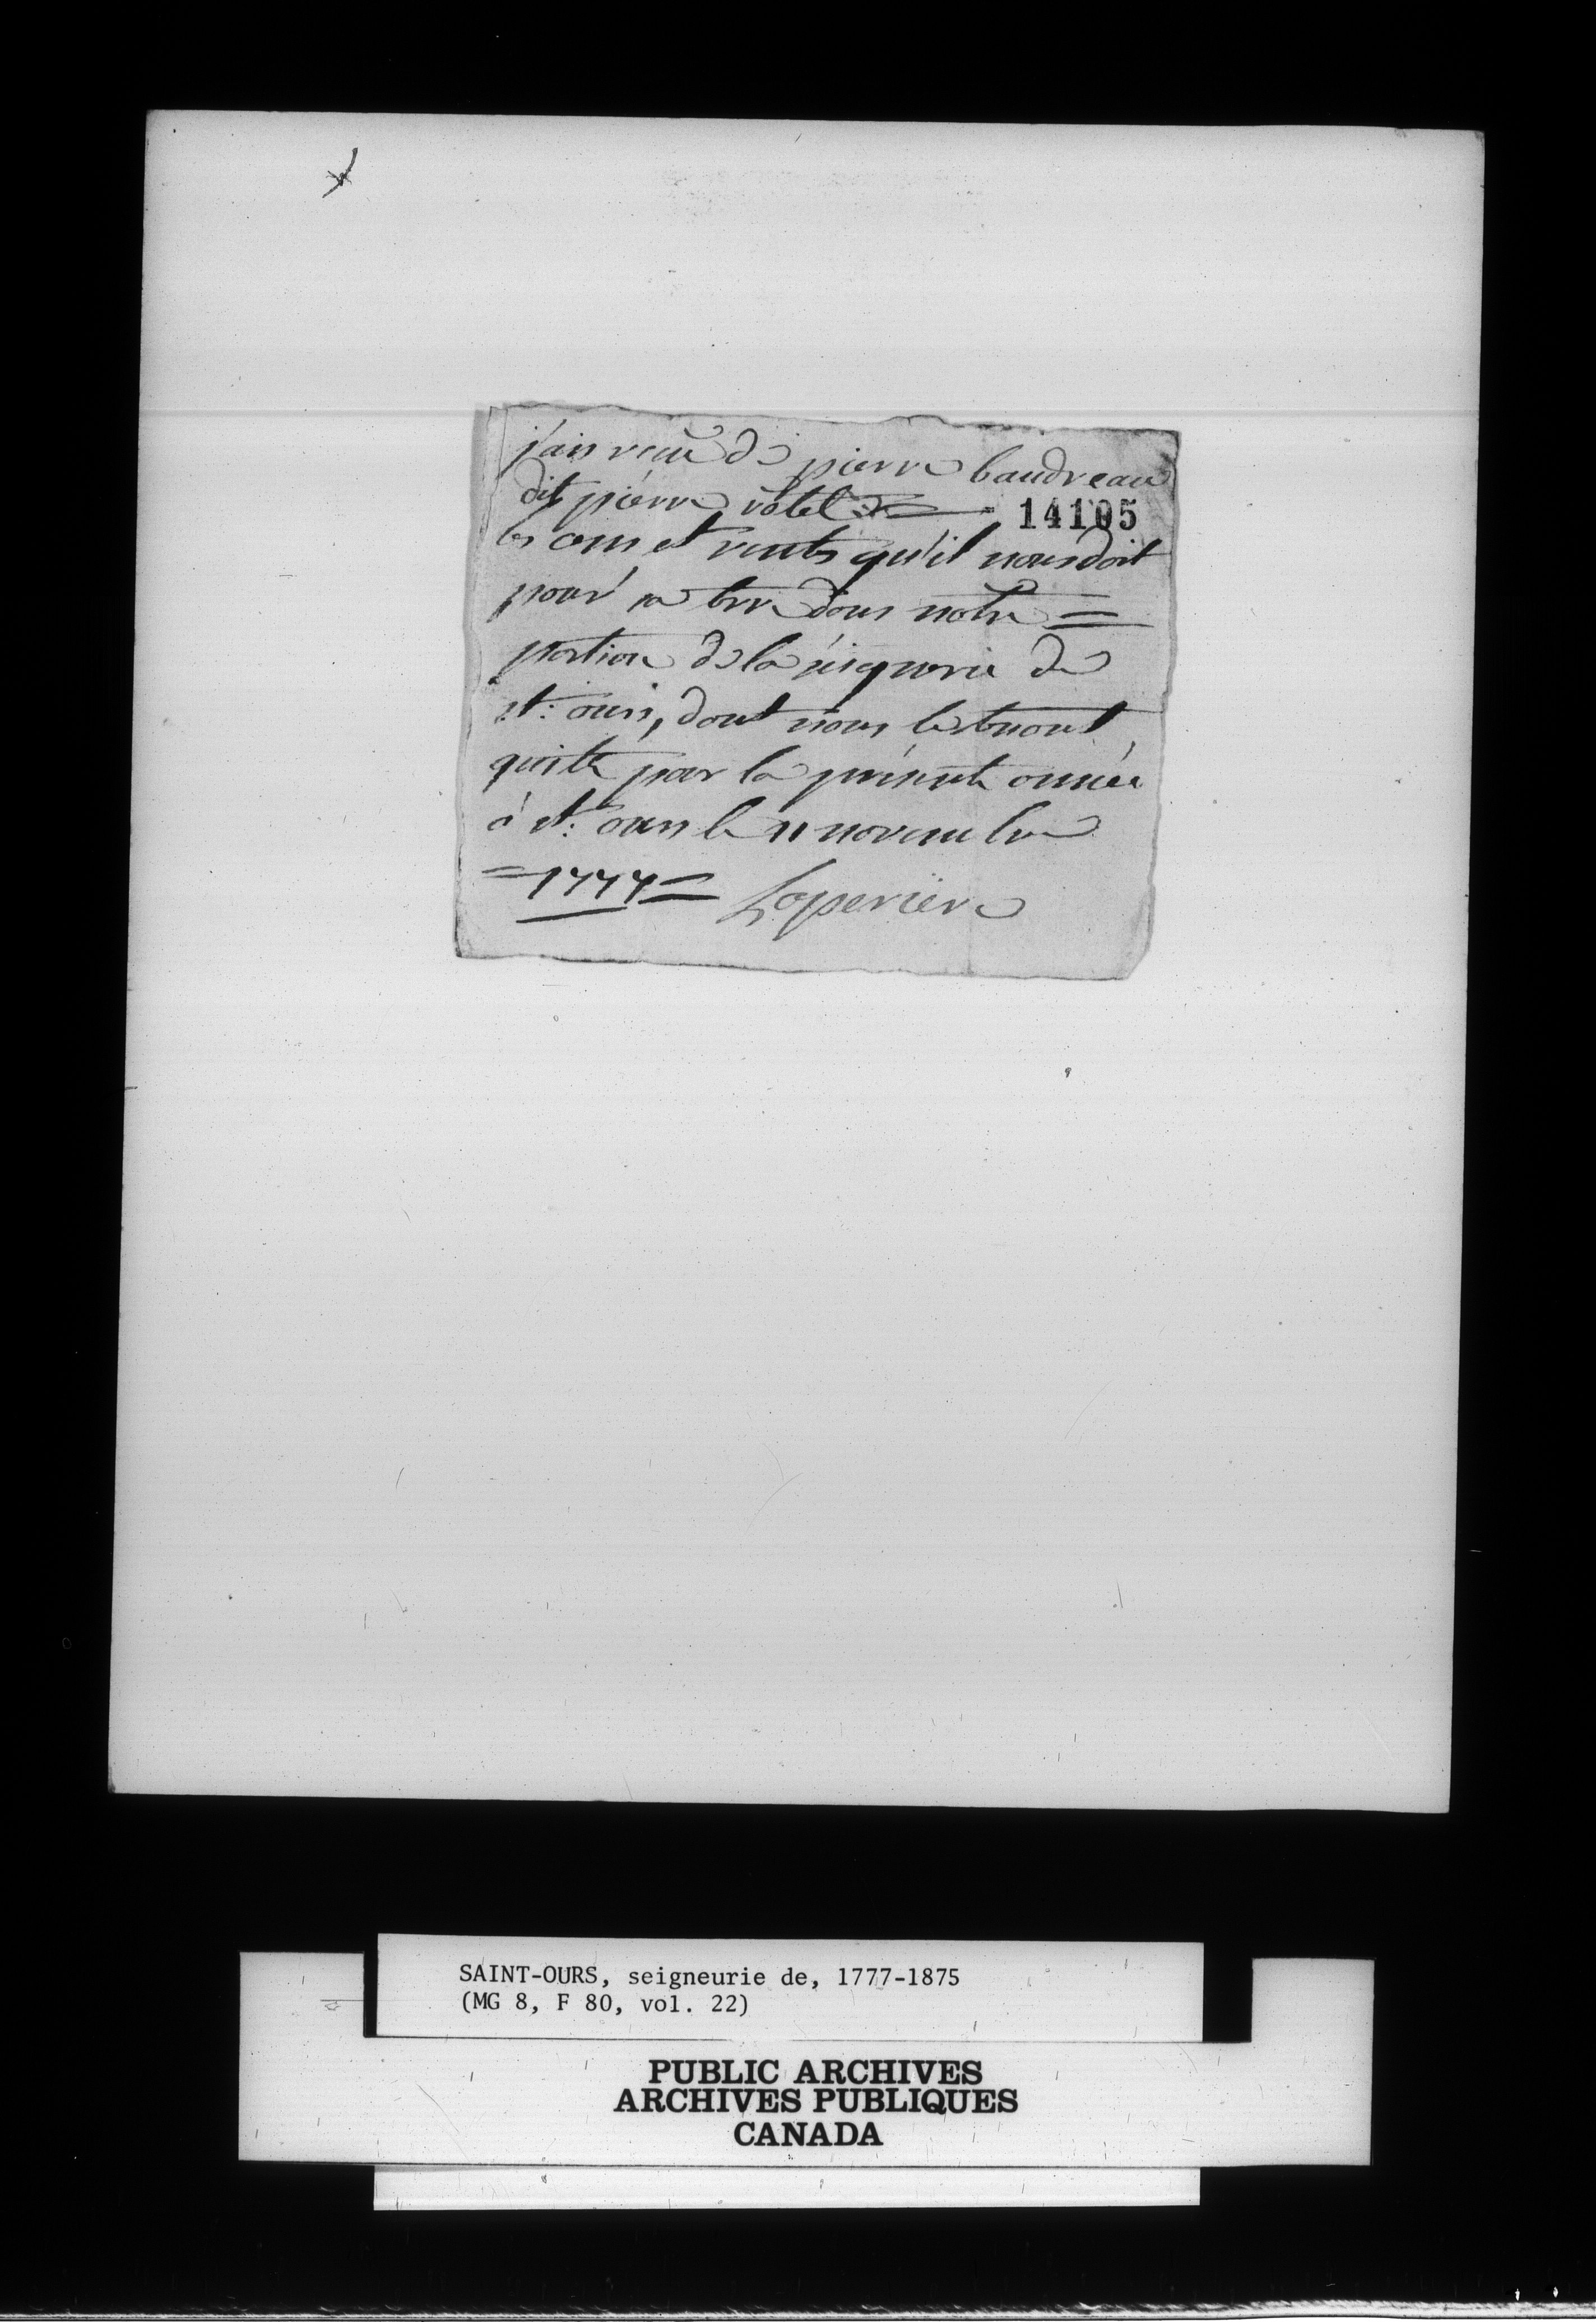 j'ais recu de pierre baudreau
dit pierre votel
14105
les cens et rentes qu'il nous doit
pour sa terre dans notre =
portion de la seigneurie de
st: ours, dont nous le tenont
quitte pour la présente année
à st: ours le 11 novembre
= 1777 = Laperiere
SAINT-OURS, seigneurie de, 1777-1875
(MG 8, F 80, vol. 22)
PUBLIC ARCHIVES
ARCHIVES PUBLIQUES
CANADA